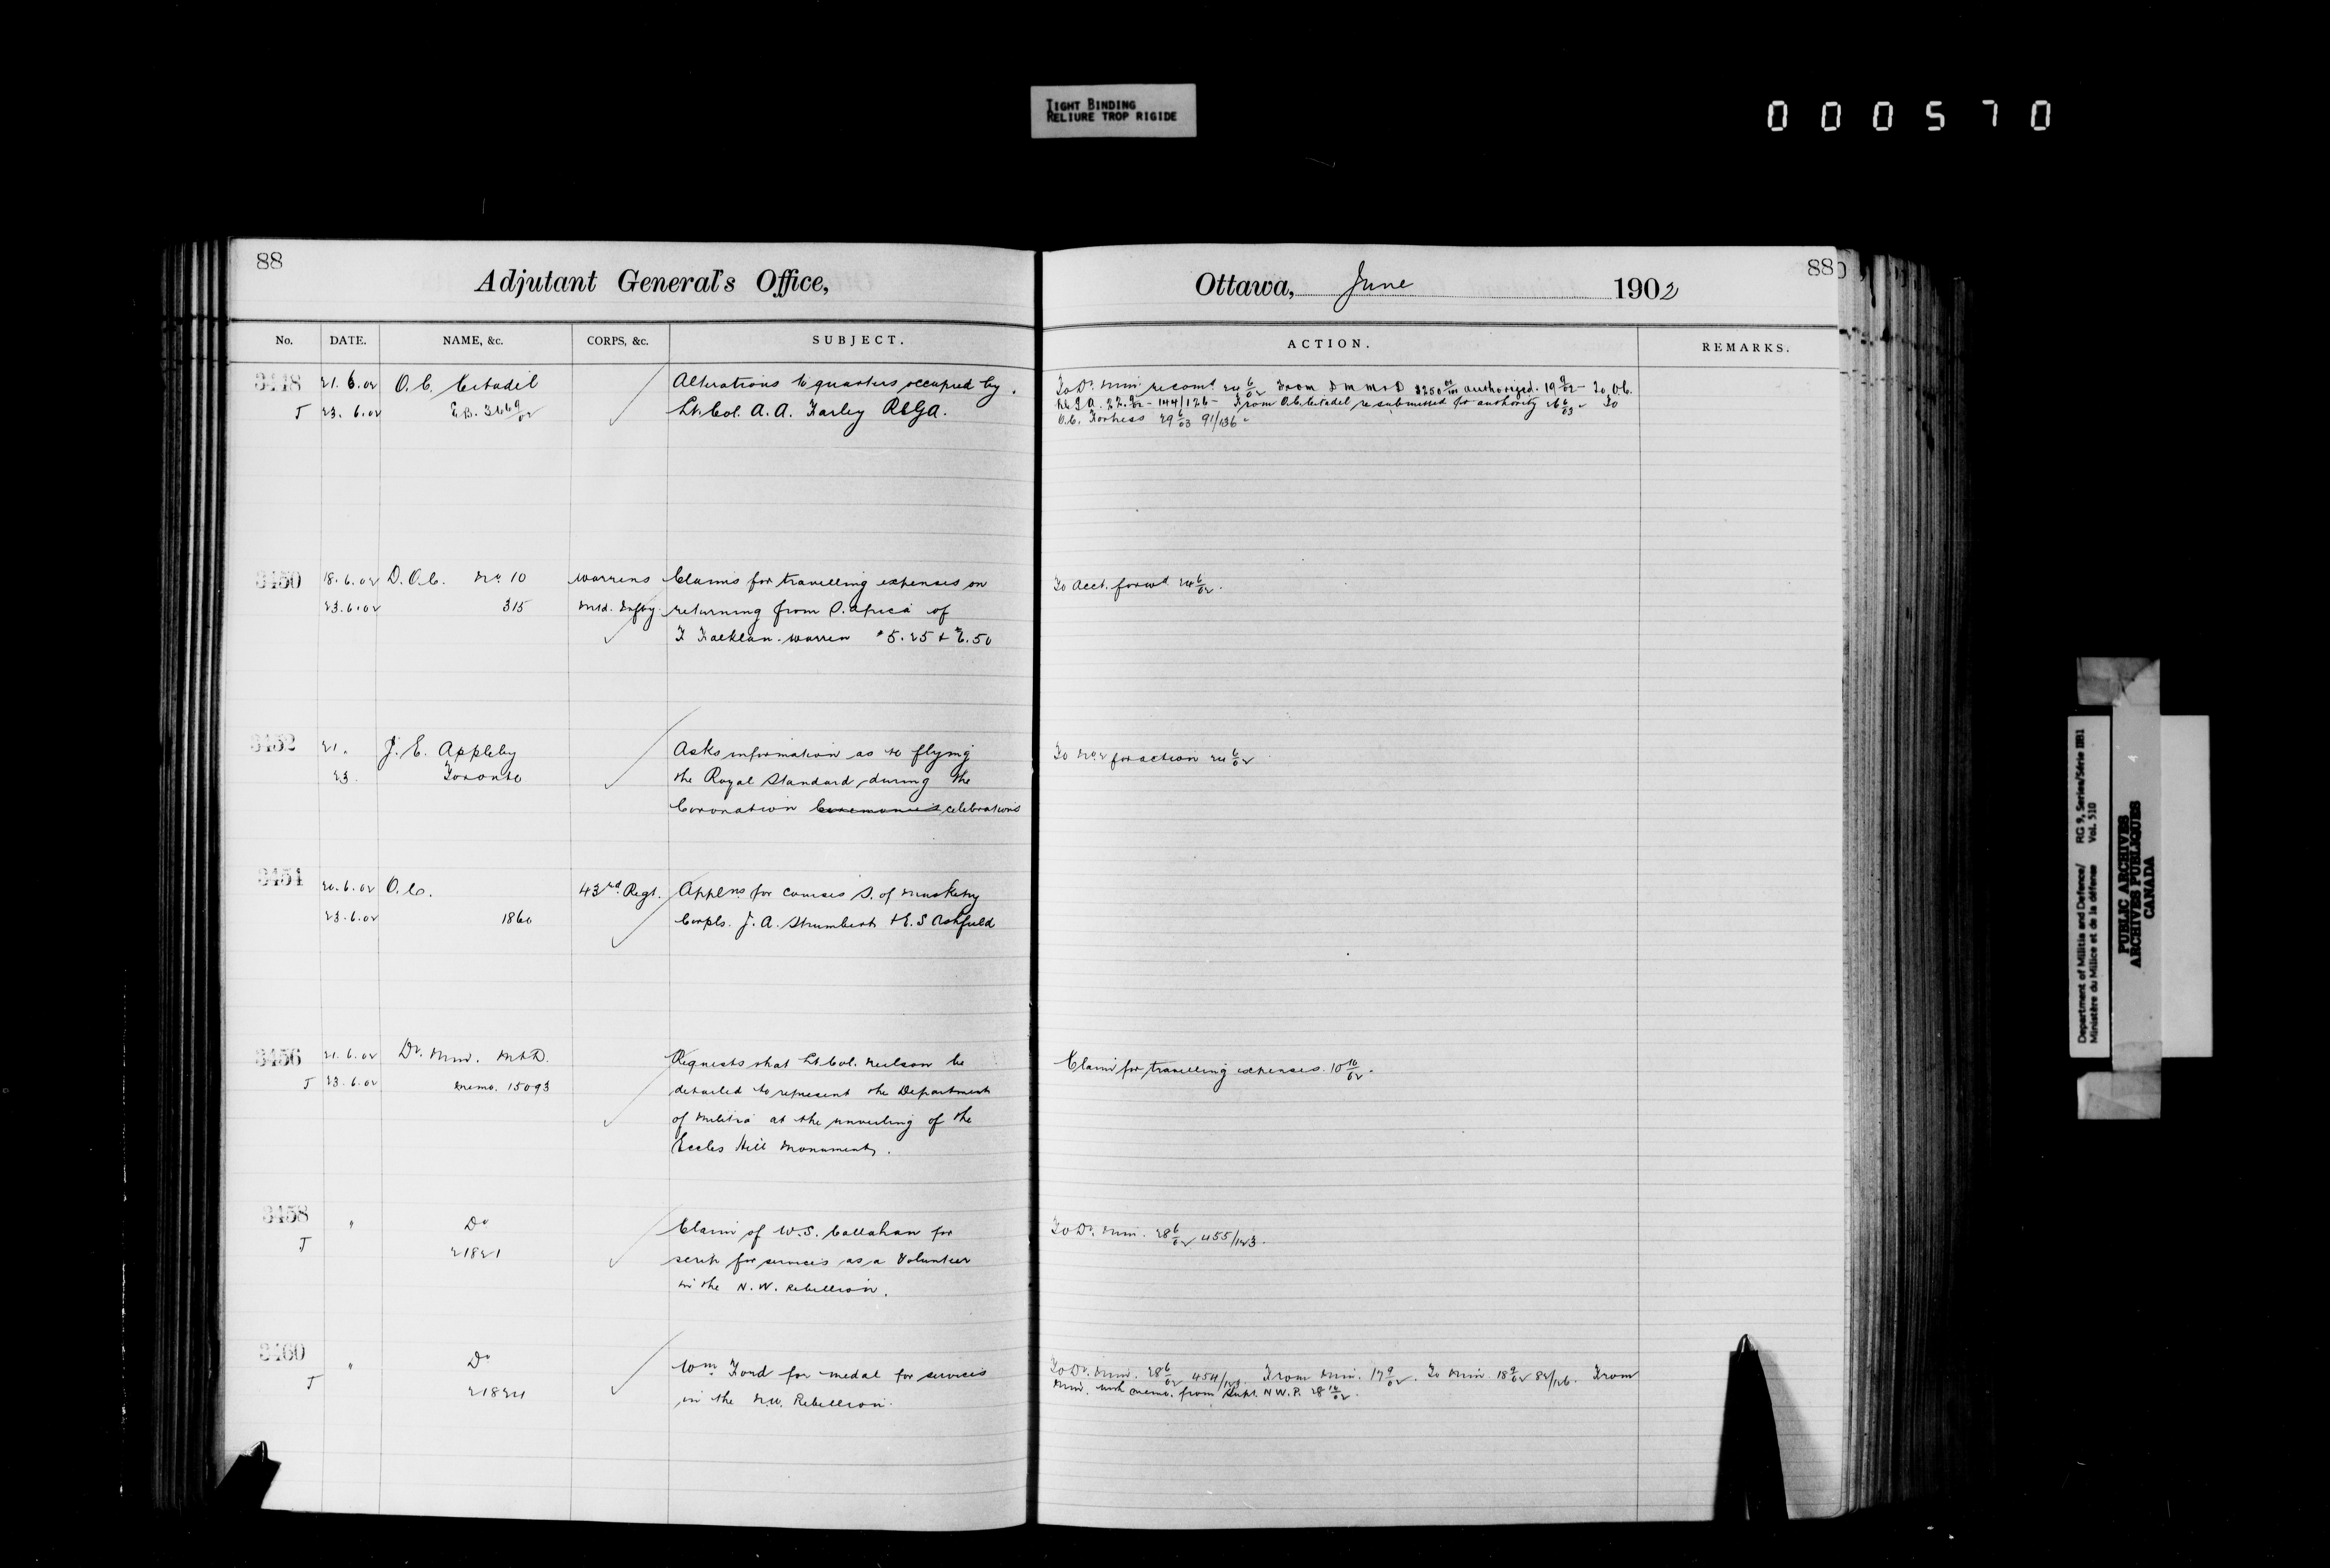 TIGHT BINDING
RELIURE TROP RIGIDE
000570
88
Adjutant General's Office,
Ottawa, June 1902
88
No. DATE. NAME, &c. CORPS, &c. SUBJECT. ACTION. REMARKS.
3448 21.6.02 O.C. Citadel Alterations to quarters occupied by
J 23.6.02 E.B. 366 9/02 Lt. Col. A. A. Farley RCGA.
To Dy. Min. recomd. 24 6/02 From D M M & D $250 00/100 authorized. 19 9/02 - To O.C.
R.C.G.A. 22 9/02 - 144/126 - From O.C. Citadel resubmitted for authority 26 6/03 - To
O.C. Fortress 29 6/03 91/136
3450 18.6.02 D.O.C. No. 10 Warrens Claims for travelling expenses on
23.6.02 315 Mtd. Infty. returning from S. Africa of
F. warren $5.25 & $6.50
To Acct. forwd 24 6/02.
3452 21. J. E. Appleby Asks information as to flying
23. Toronto the Royal Standard, during the
Coronation Ceremonies celebrations
To No. 2 for action 24 6/02
3454 20.6.02 O.C. 43rd. Regt. Applns for courses S. of Musketry
23.6.02 1860 Corpls. J. A. & E. S Ashfield
3456 21.6.02 Dy. Min. M & D. Requests that Lt. Col. Neilson be
J 23.6.02 Memo. 15093 detailed to represent the Department
of Militia at the unveiling of the
Eccles Hill Monument.
Claim for travelling expenses. 10 10/02.
3458 " Do Claim of W. S. Callahan for
J 21821 scrip for services as a Volunteer
in the N. W. Rebellion.
To Dy. Min. 28 6/02 455/123.
3460 " Do Wm. Ford for medal for services
J 21824 in the N.W. Rebellion.
To Dy. Min. 28 6/02 454/123. From Min. 17 9/02. To Min. 18 9/02 82/126. From
Min. with memo. from Supt. N W. P. 28 10/02.
Department of Militia and Defence/
Ministère du Milice et de la défense
RG 9, Series/Série IIB1
Vol. 510
PUBLIC ARCHIVES
ARCHIVES PUBLIQUES
CANADA